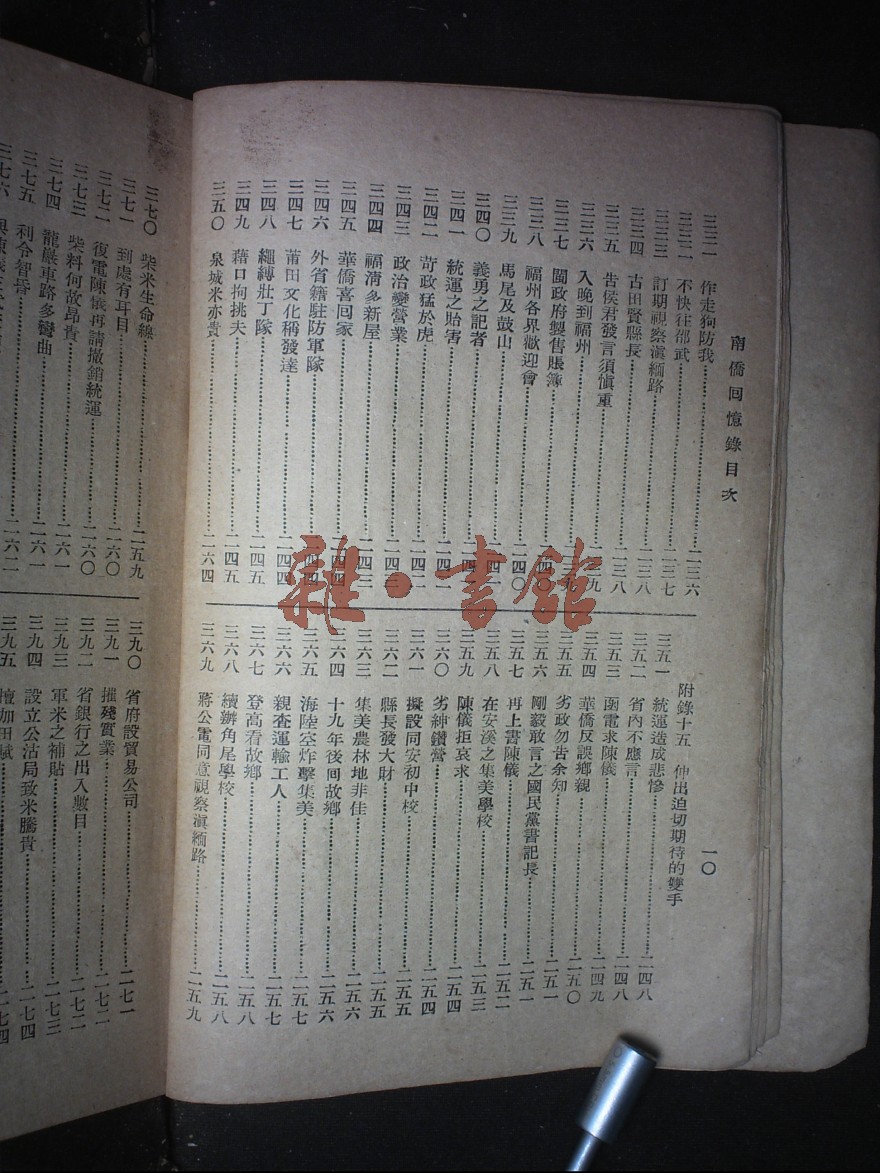 南僑回憶錄目次
一〇
三三一 作走狗防我 二三六
三三二 不快往邵武 二三七
三三三 訂期視察滇緬路 二三八
三三四 古田賢縣長 二三八
三三五 告侯君發言須慎重
三三六 入晚到福州
三三七 閩政府製售賬簿
三三八 福州各界歡迎會 二四〇
三三九 馬尾及鼓山
三四〇 義勇之記者
三四一 統運之貽害
三四二 苛政猛於虎
三四三 政治變營業
三四四 福清多新屋
三四五 華僑喜回家
三四六 外省籍駐防軍隊
三四七 莆田文化稱發達 二四四
三四八 繩縛壯丁隊 二四五
三四九 藉口拘挑夫 二四五
三五〇 泉城米亦貴 二六四
附錄十五 伸出迫切期待的雙手
三五一 統運造成悲慘 二四八
三五二 省內不應言 二四八
三五三 函電求陳儀 二四九
三五四 華僑反誤鄉親 二五〇
三五五 劣政勿告余知 二五一
三五六 剛毅敢言之國民黨書記長 二五一
三五七 再上書陳儀 二五二
三五八 在安溪之集美學校 二五三
三五九 陳儀拒哀求 二五四
三六〇 劣紳鑽營 二五四
三六一 擬設同安初中校 二五五
三六二 縣長發大財 二五五
三六三 集美農林地非佳 二五六
三六四 十九年後回故鄉 二五六
三六五 海陸空炸擊集美 二五七
三六六 親查運輸工人 二五七
三六七 登高看故鄉 二五八
三六八 續辦角尾學校 二五八
三六九 蔣公電同意視察滇緬路 二五九
三七〇 柴米生命線 二五九
三七一 到處有耳目 二六〇
三七二 復電陳儀再請撤銷統運 二六〇
三七三 柴料何故昂貴 二六一
三七四 龍巖車路多彎曲 二六一
三七五 利令智昏 二六二
三七六
三九〇 省府設貿易公司 二七一
三九一 摧殘實業 二七二
三九二 省銀行之出入數目 二七二
三九三 軍米之補貼 二七三
三九四 設立公沽局致米騰貴 二七四
三九五 增加田賦 二七四
雜·書館